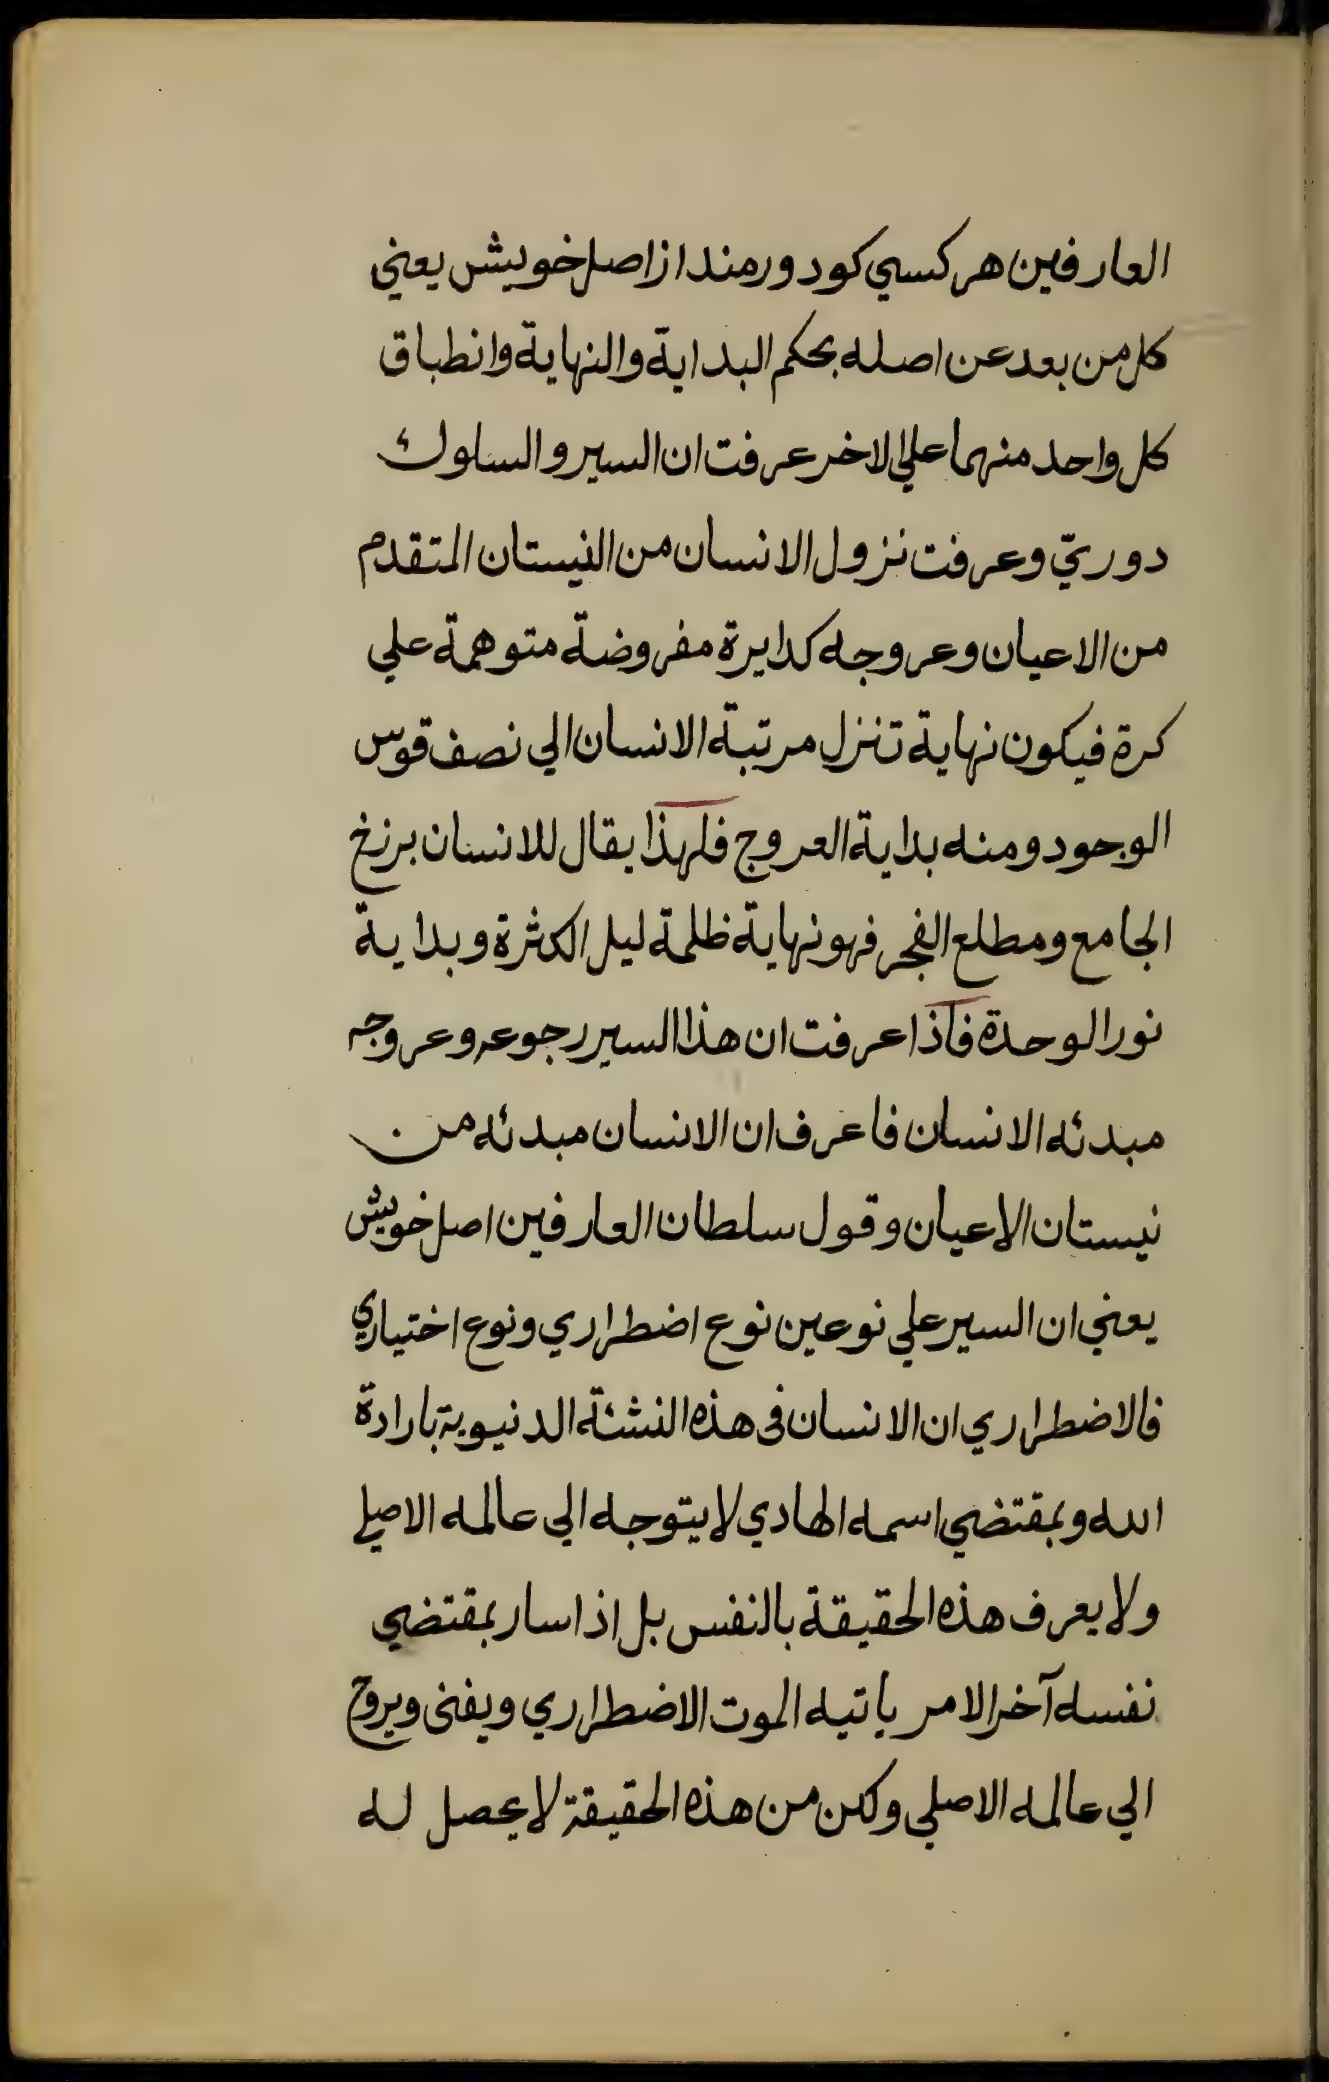 العارفين هر كسي كو دور مند از اصل خويش يعني
كل من بعد عن اصله بحكم البداية والنهاية وانطباق
كل واحد منهما علي الاخر عرفت ان السير والسلوك
دوريّ وعرفت نزول الانسان من النيستان المتقدم
من الاعيان وعروجه كدايرة مفروضة متوهمة علي
كرة فيكون نهاية تنزل مرتبة الانسان الي نصف قوس
الوجود ومنه بداية العروج فلهذا يقال للانسان برزخ
الجامع ومطلع الفجر فهو نهاية ظلمة ليل الكثرة وبداية
نور الوحدة فآذا عرفت ان هذا السير رجوعه وعروجه
مبدئه الانسان فاعرف ان الانسان مبدئه من
نيستان الاعيان وقول سلطان العارفين اصل خويش
يعني ان السير علي نوعين نوع اضطراري ونوع اختياري
فالاضطراري ان الانسان فى هذه النشئة الدنيوية بارادة
الله وبمقتضي اسمه الهادي لا يتوجه الي عالمه الاصلي
ولا يعرف هذه الحقيقة بالنفس بل اذا سار بمقتضي
نفسه آخر الامر ياتيه الموت الاضطراري ويفنى ويروح
الي عالمه الاصلي ولكن من هذه الحقيقة لا يحصل له